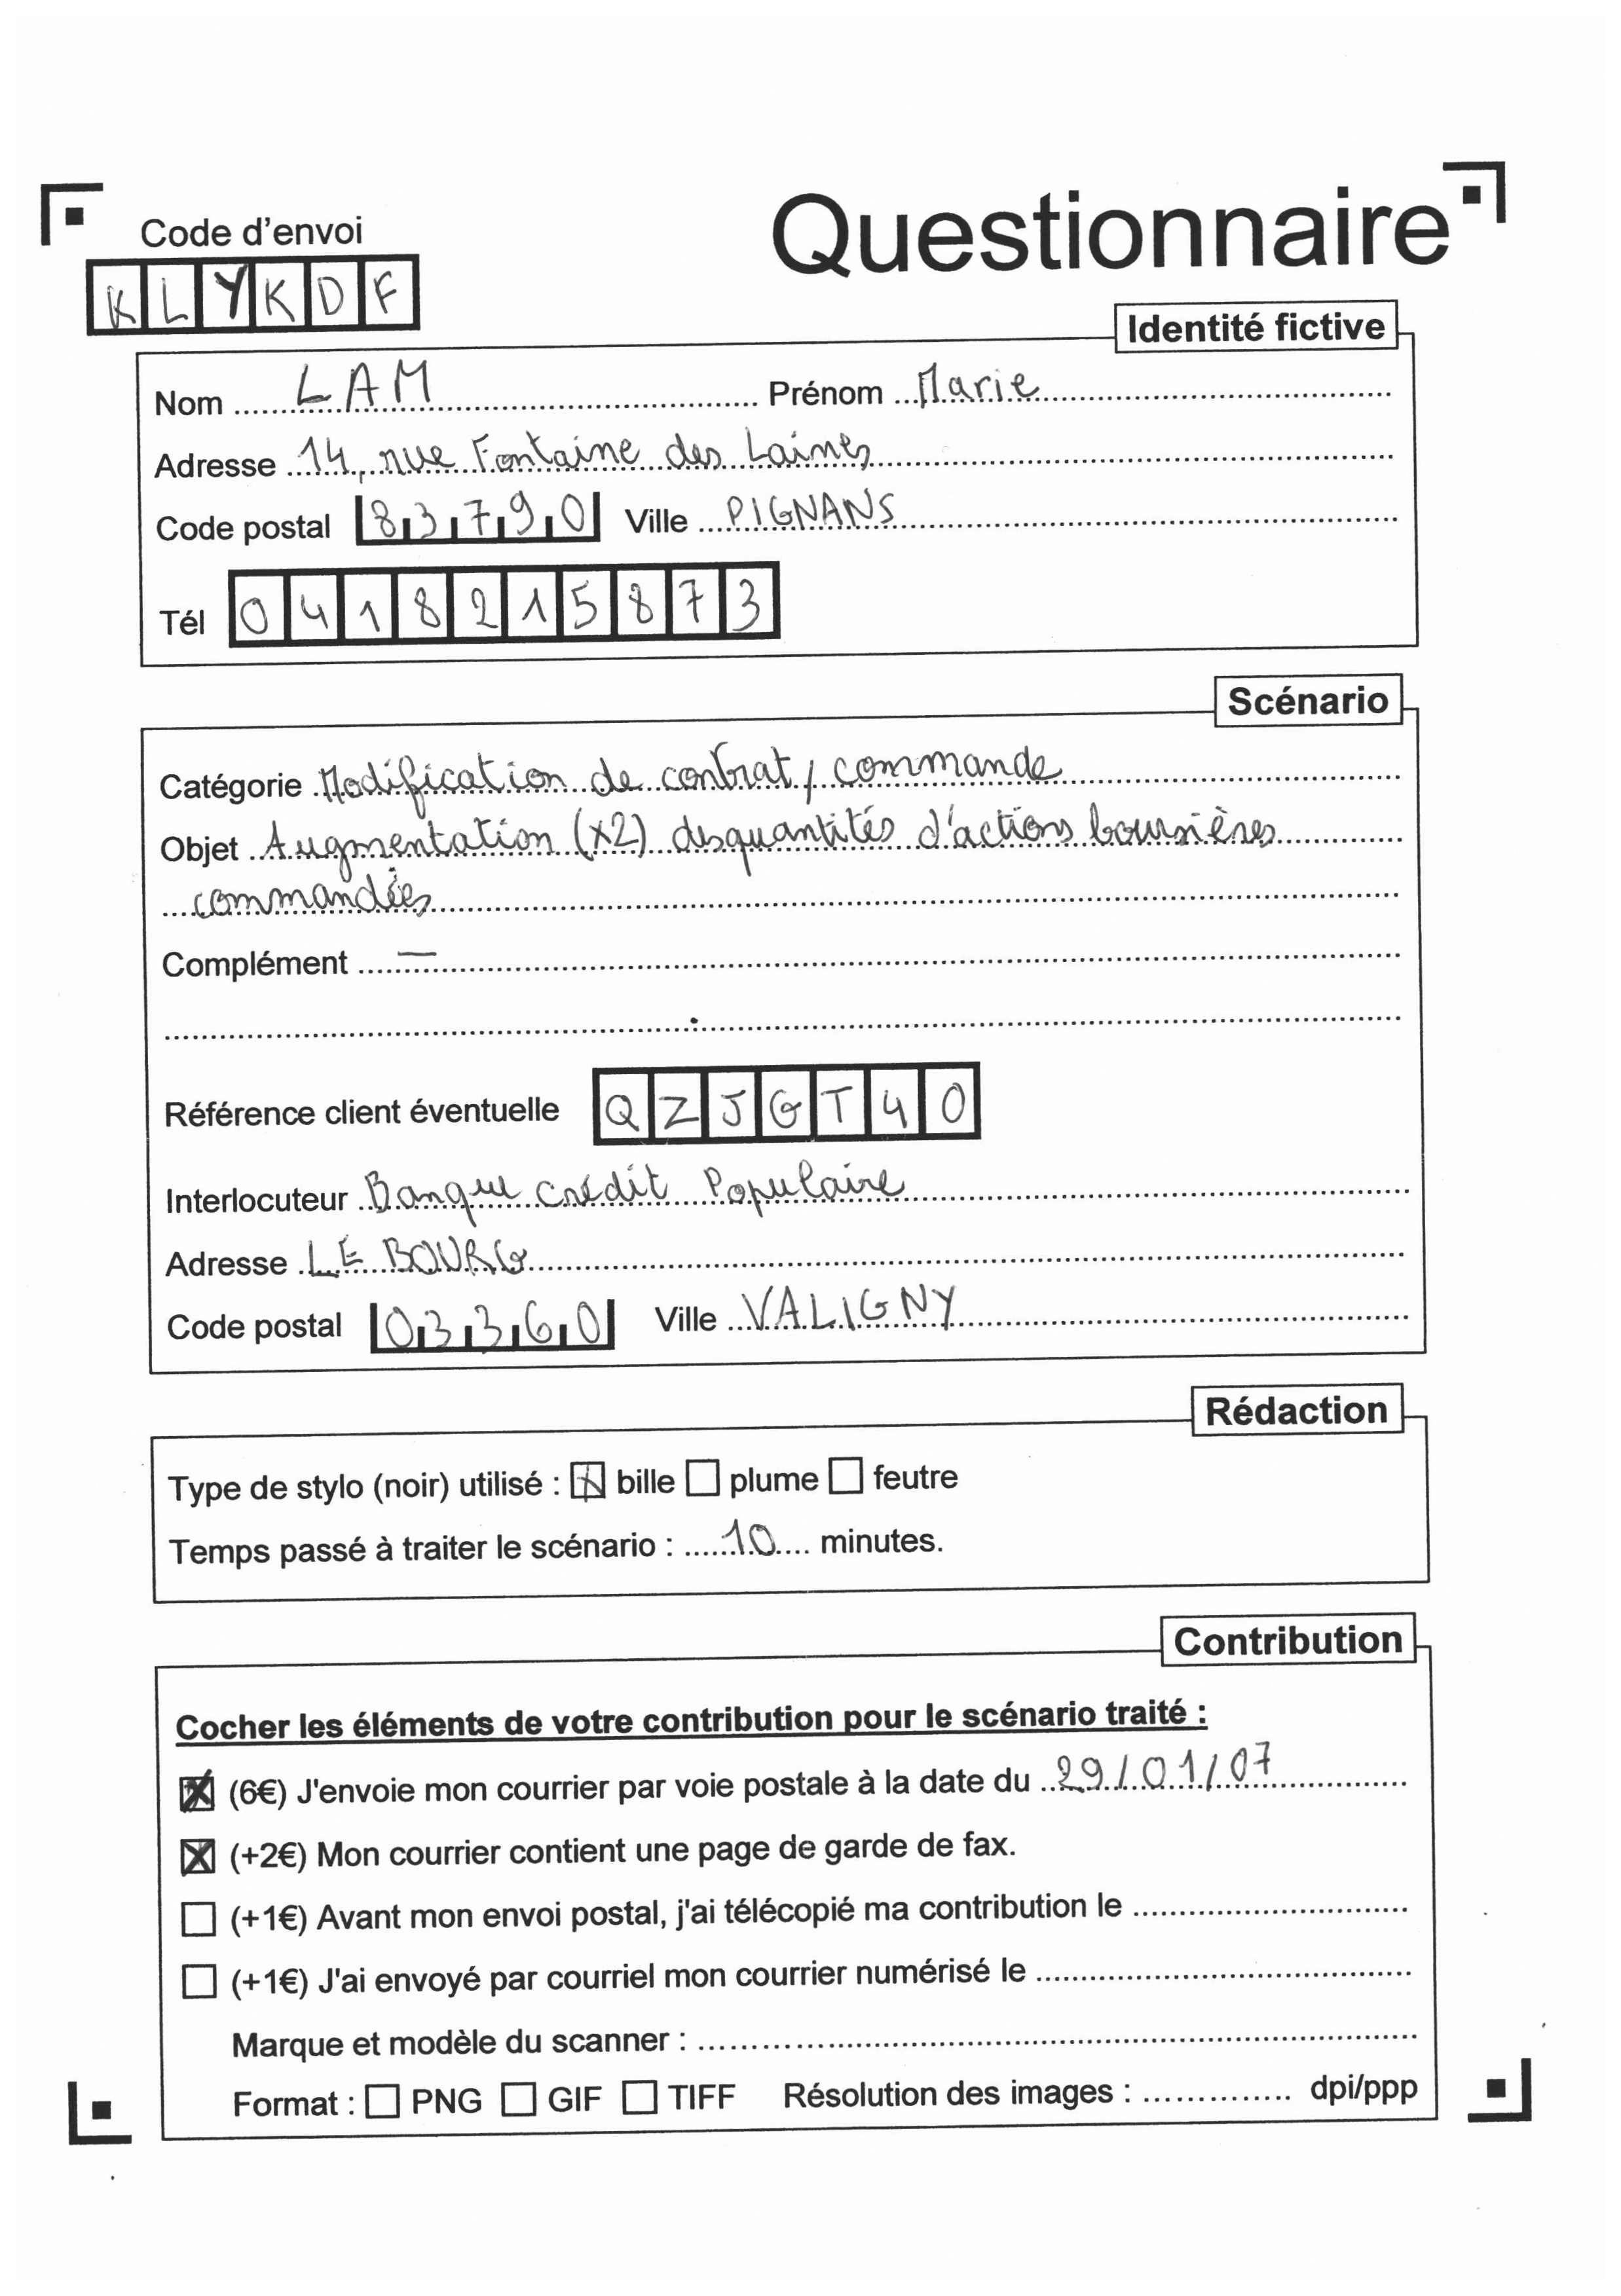 Questionnaire
Code d'envoi
KLYKDF
Identité fictive
Nom LAM Prénom Marie
Adresse 14, rue Fontaine des Laines
Code postal 83790 Ville PIGNANS
Tél 0418215873
Scénario
Catégorie Modification de contrat / commande
Objet Augmentation (x2) des quantités d'actions boursières
commandées
Complément —
Référence client éventuelle QZJGT40
Interlocuteur Banque crédit Populaire
Adresse LE BOURG
Code postal 03360 Ville VALIGNY
Rédaction
Type de stylo (noir) utilisé : ☒ bille ☐ plume ☐ feutre
Temps passé à traiter le scénario : 10 minutes.
Contribution
Cocher les éléments de votre contribution pour le scénario traité :
☒ (6€) J'envoie mon courrier par voie postale à la date du 29/01/07
☒ (+2€) Mon courrier contient une page de garde de fax.
☐ (+1€) Avant mon envoi postal, j'ai télécopié ma contribution le
☐ (+1€) J'ai envoyé par courriel mon courrier numérisé le
Marque et modèle du scanner :
Format : ☐ PNG ☐ GIF ☐ TIFF Résolution des images : dpi/ppp